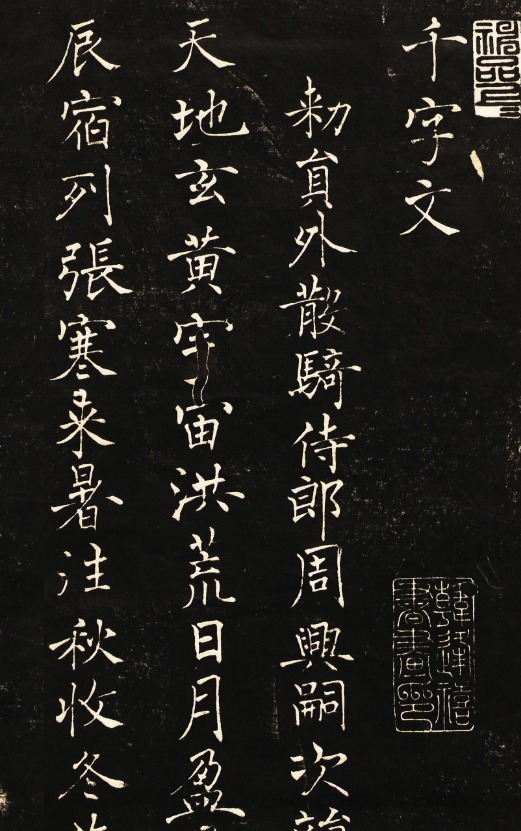 千字文
勑員外散騎侍郎周興嗣次
天地玄黄宇宙洪荒日月盈
辰宿列張寒来暑往秋收冬
韓逢禧
書畫印